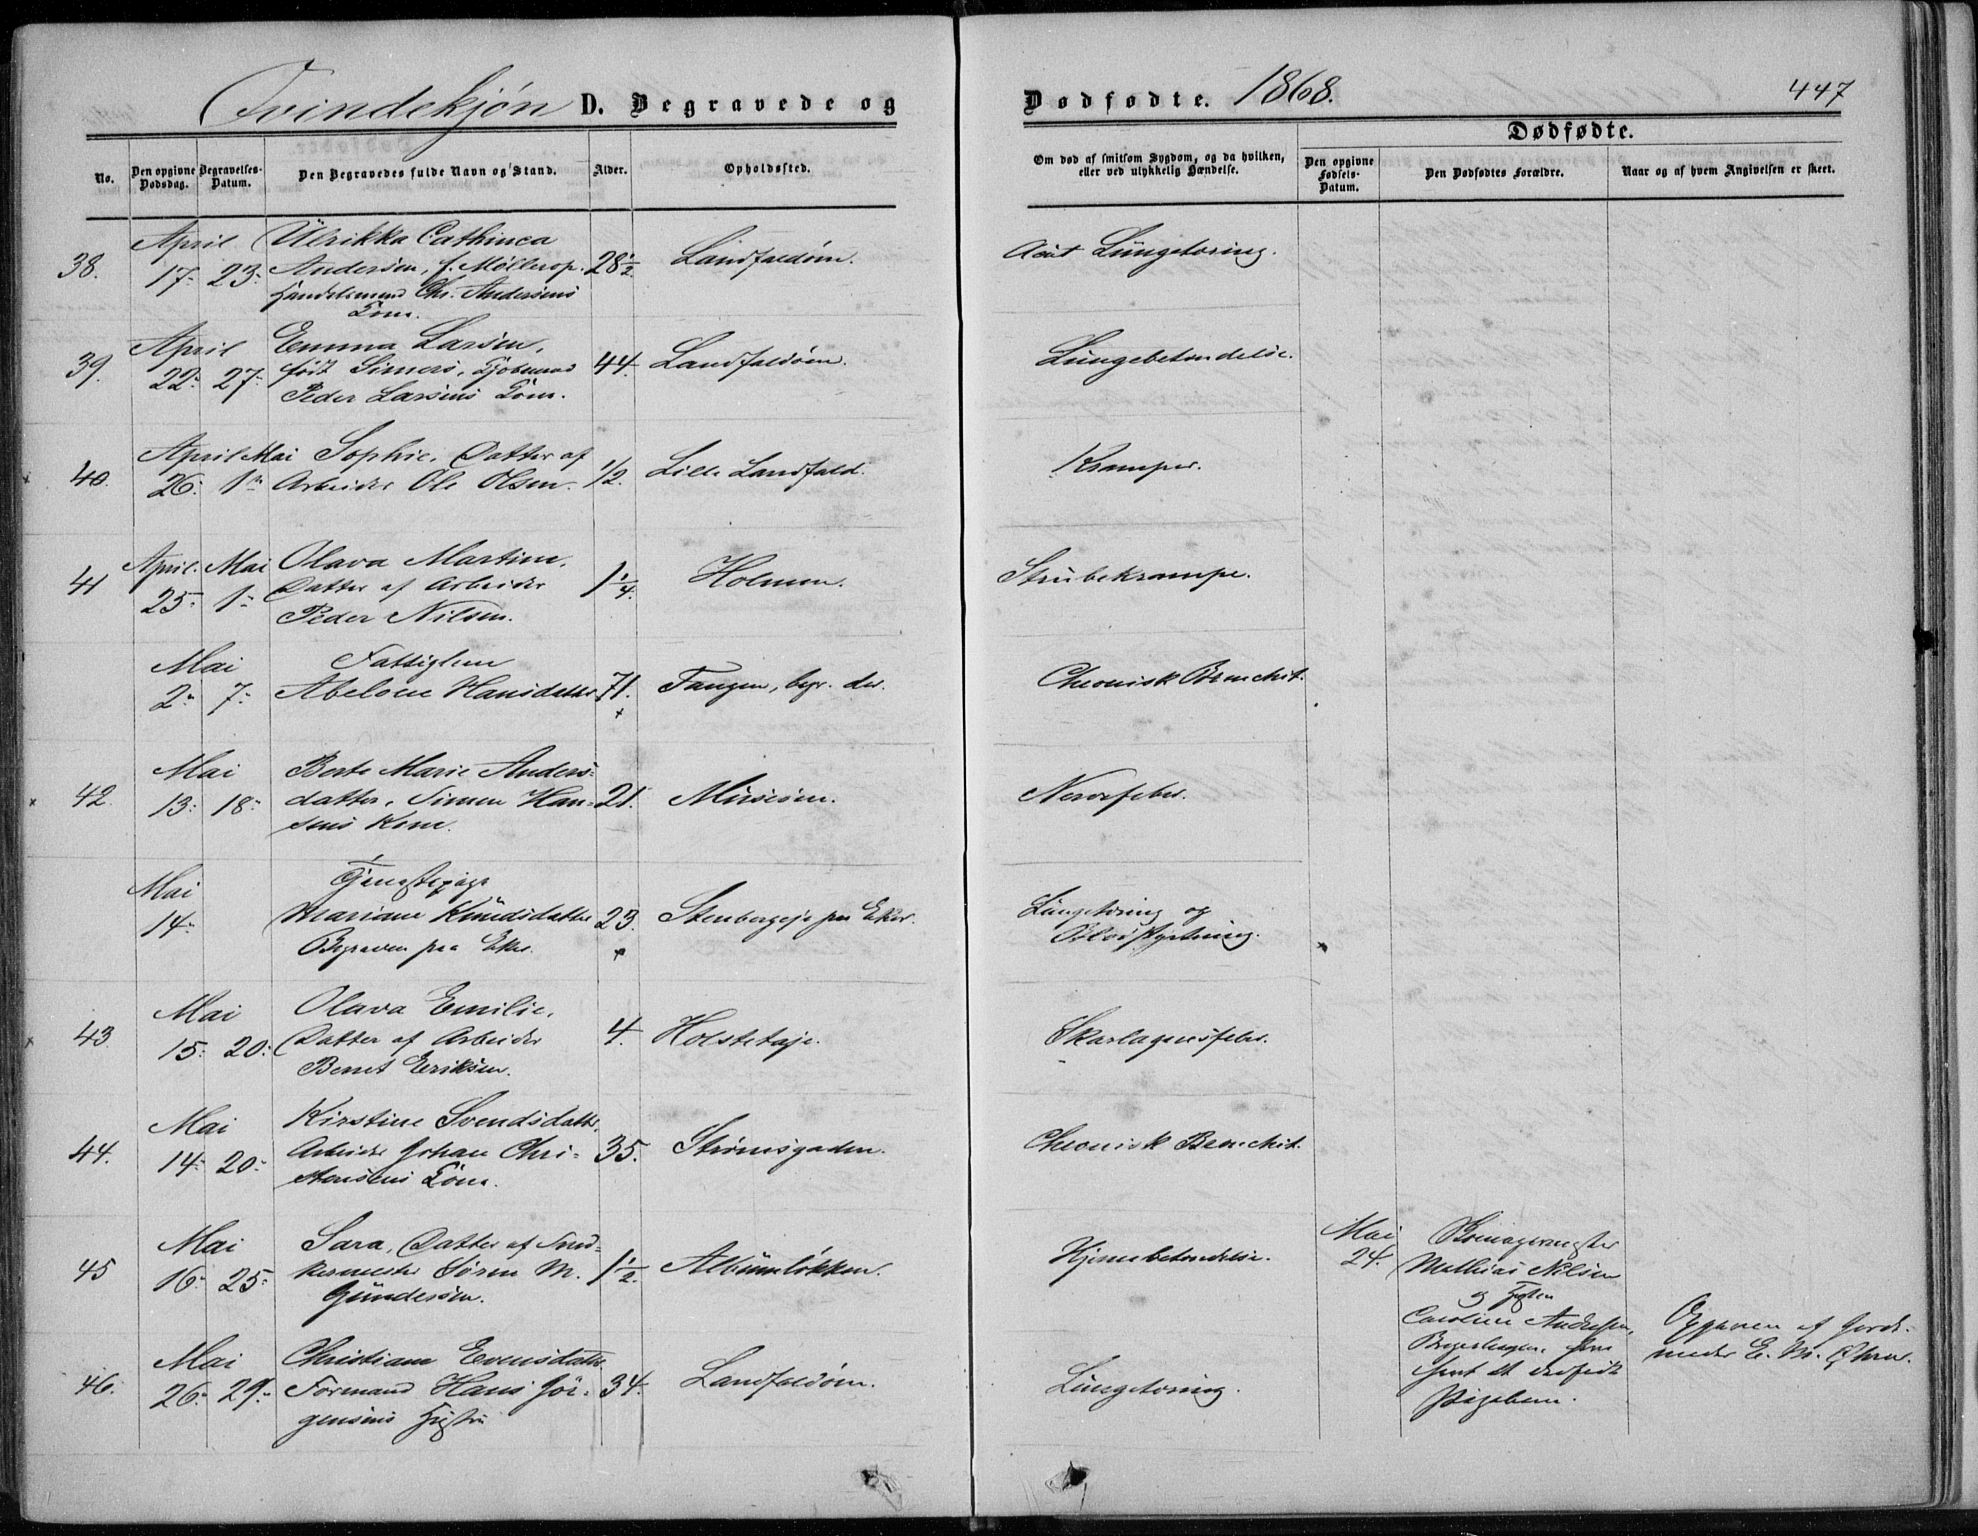 Qvindekjøn D. Begravede og
Dødfødte. 1868. 447
No.
Den opgivne Dødsdag.
Begravelses-Datum.
Den Begravedes fulde Navn og Stand.
Alder.
Opholdssted.
Om død af smitsom Sygdom, og da hvilken, eller ved ulykkelig Hændelse.
Dødfødte.
Den opgivne Fødsels-Datum.
Den Dødfødtes Forældre.
Naar og af hvem Angivelsen er skeet.
April Ülrikka Cathinca
38. 17- 23- Andersen, f. Møllerop. 28½ Landfaldøen. Acut Lüngetæring.
Handelsmand Chr. Andersens
Kone.
April Emma Larsen,
39. 22- 27- født Simers, 44. Landfaldøen. Lüngebetendelse.
Peder Larsens Kone.
April Mai Sophie, Datter af
40. 26. 1- Arbeider Ole Olsen. 1/2. Lille Landfald. Kramper.
April. Mai Olava Martine,
41 25- 1- Datter af Arbeider 1¼. Holmen. Strübekrampe.
Peder Nilsen.
Mai Fattiglem
2- 7- Abeloue Hansdatter 71. Tangen, begr. der. Chronisk Bronchit.
Mai Berte Marie Anders-
42. 13- 18- datter, Simen Han- 21. Müsøen. Nervefeber.
sens Kone.
Mai Tjenestepige
14- Mariane Knüdsdatter 23. Stenbergeje paa Eker. Lüngetæring og
Begraven paa Eker. Blodstyrtning.
Mai Olava Emilie,
43. 15- 20- Datter af Arbeider 4. Holsteteje. Skarlagensfeber.
Bernt Eriksen.
Mai Kirstine Svendsdatter,
44. 14- 20- Arbeider Johan Chri- 35. Strømsgaden. Chronisk Bronchit.
stensens Kone.
Mai Sara, Datter af Sned-
45 16- 25- kermester Søren M. 1½. Albümløkken. Hjernebetendelse.
Gündersen.
Mai Christiane Evensdatter
46. 26- 29- Formand Hans Jør- 34. Landfaldøen. Lüngetæring.
gensens Hustru
Mai
24.
Mathias Nilsen
og Hustru
Caroline Andersen,
født et dødfødt
Pigebarn.
Opgiven af Jorde-
moder E. M.